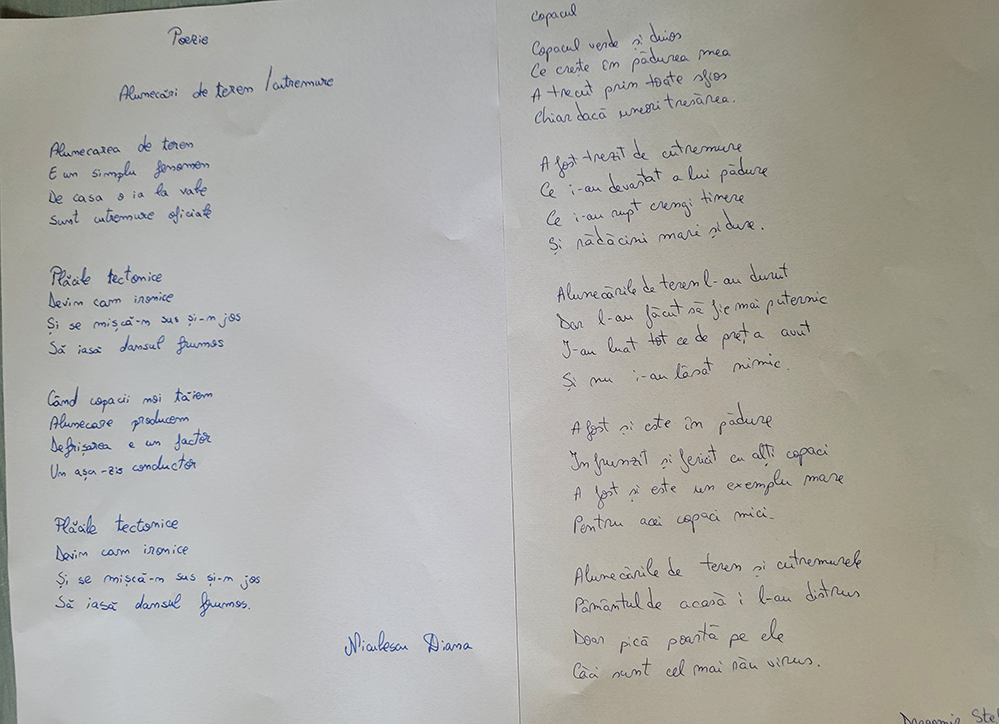 Poezie
Alunecări de teren / cutremure
Alunecarea de teren
E un simplu fenomen
De casa o ia la vale
Sunt cutremure oficiale
Plăcile tectonice
Devin cam ironice
Și se mișcă-n sus și-n jos
Să iasă dansul frumos
Când copacii noi tăiem
Alunecare producem
Defrișarea e un factor
Un așa-zis conductor
Plăcile tectonice
Devin cam ironice
Și se mișcă-n sus și-n jos
Să iasă dansul frumos.
Niculescu Diana
Copacul
Copacul verde și duios
Ce crește în pădurea mea
A trecut prin toate sfios
Chiar dacă uneori tresărea.
A fost trezit de cutremure
Ce i-au devastat a lui pădure
Ce i-au rupt crengi tinere
Și rădăcini mari și dure.
Alunecările de teren l-au durut
Dar l-au făcut să fie mai puternic
I-au luat tot ce de preț a avut
Și nu i-au lăsat nimic.
A fost și este în pădure
Înfrunzit și fericit cu alți copaci
A fost și este un exemplu mare
Pentru acei copaci mici.
Alunecările de teren și cutremurele
Pământul de acasă i l-au distrus
Doar pică poartă pe ele
Căci sunt cel mai rău virus.
Dragomir